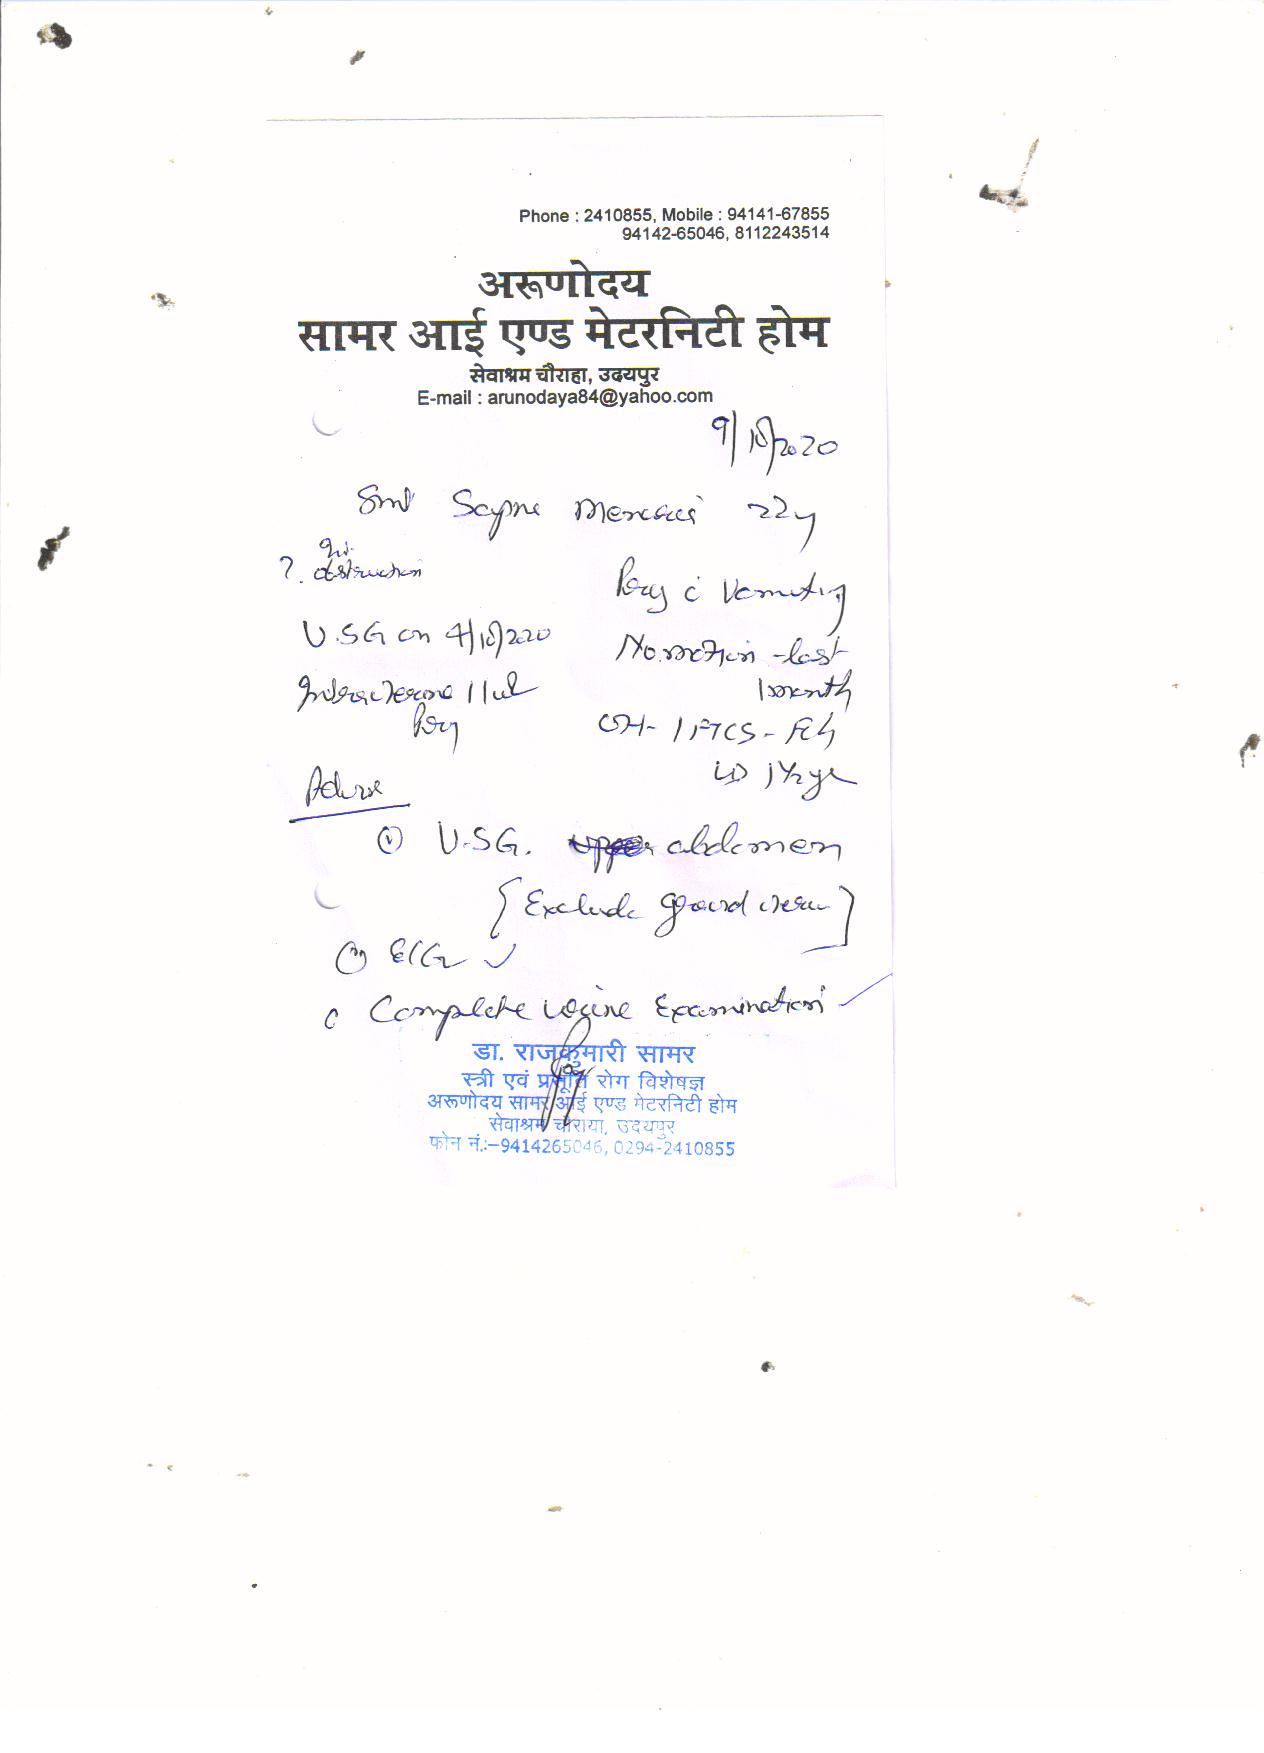 Phone : 2410855, Mobile : 94141-67855
94142-65046, 8112243514
अरूणोदय
सामर आई एण्ड मेटरनिटी होम
सेवाश्रम चौराहा, उदयपुर
E-mail : arunodaya84@yahoo.com
9/10/2020
Smt 22y
? Int. obstruction
c Vomiting
U.S.G on 4/10/2020
No motion - last
1 month
Intrauterine
OH- 1 FTCS - FCh
LD 1½ yr
Advise
U.S.G. abdomen
{Exclude gravid
ECG
Complete Urine Examination
डा. राजकुमारी सामर
स्त्री एवं प्रसूति रोग विशेषज्ञ
अरूणोदय सामर आई एण्ड मेटरनिटी होम
सेवाश्रम चौराया, उदयपुर
फोन नं.:–9414265046, 0294-2410855